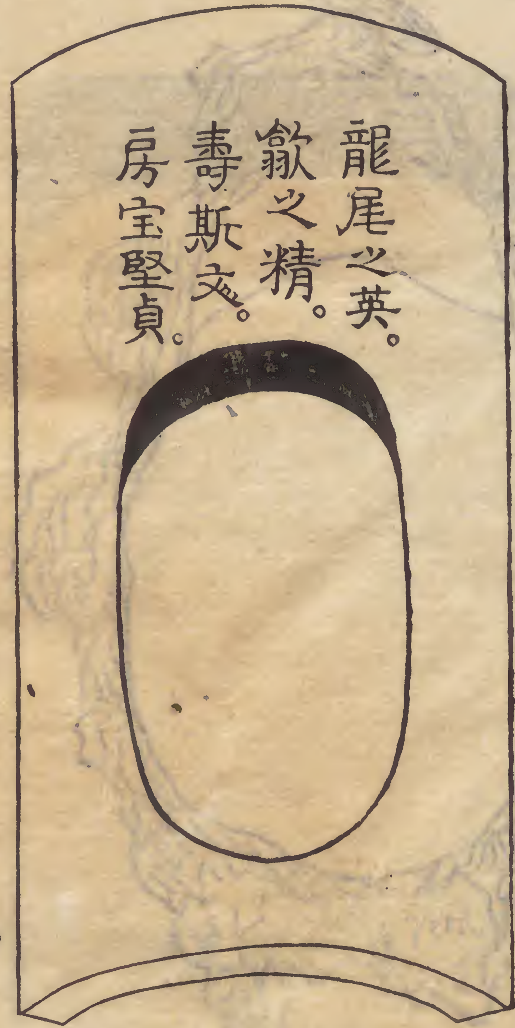 龍尾之英。
歙之精。
壽斯文。
房宝堅貞。